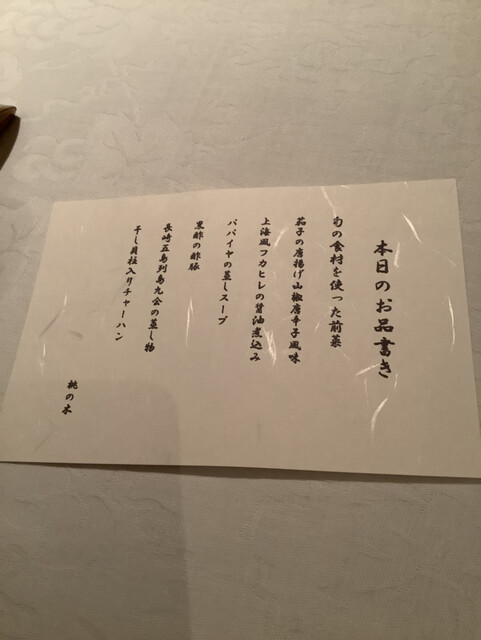 本日のお品書き
旬の食材を使った前菜
茄子の唐揚げ山椒唐辛子風味
上海風フカヒレの醤油煮込み
パパイヤの蒸しスープ
黒酢の酢豚
長崎五島列島九会の蒸し物
干し貝柱入りチャーハン
桃の木